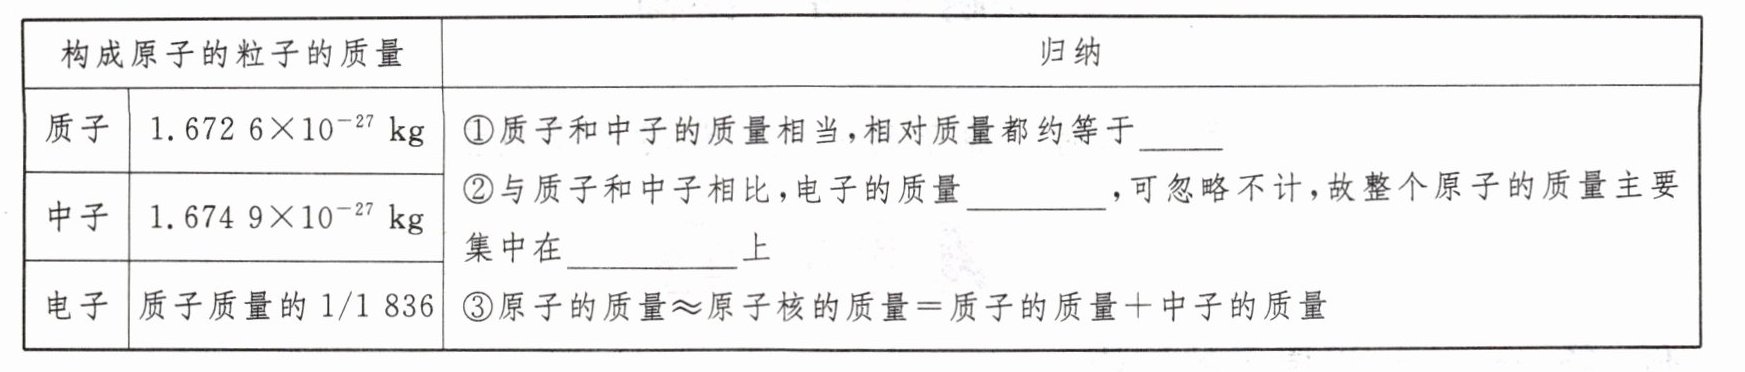 构成原子的粒子的质量 归纳
质子 1.672 6×10⁻²⁷ kg ①质子和中子的质量相当,相对质量都约等于_____
中子 1.674 9×10⁻²⁷ kg ②与质子和中子相比,电子的质量________,可忽略不计,故整个原子的质量主要
集中在__________上
电子 质子质量的 1/1 836 ③原子的质量≈原子核的质量=质子的质量+中子的质量